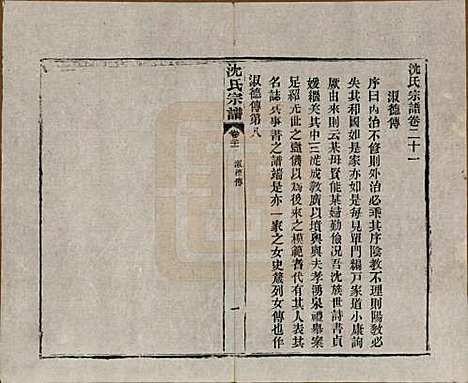 沈氏宗譜卷二十一
淑德傳
序曰內治不修則外治必乖其序陰教不理則陽教必
失其和國如是家亦如是每見單門編戶家道小康詢
厥由來則云某母賢能某婦勤儉况吾沈族世詩書貞
媛繼美其中三遷成教廣以墳輿與夫孝湧泉禮舉案
足釋尤此之懿儀以為後來之模範耆代有其人表其
名誌其事書之譜端是亦一家之女史箴列女傳也作
淑德傳第八
沈氏宗譜
卷二十一
淑德傳
一